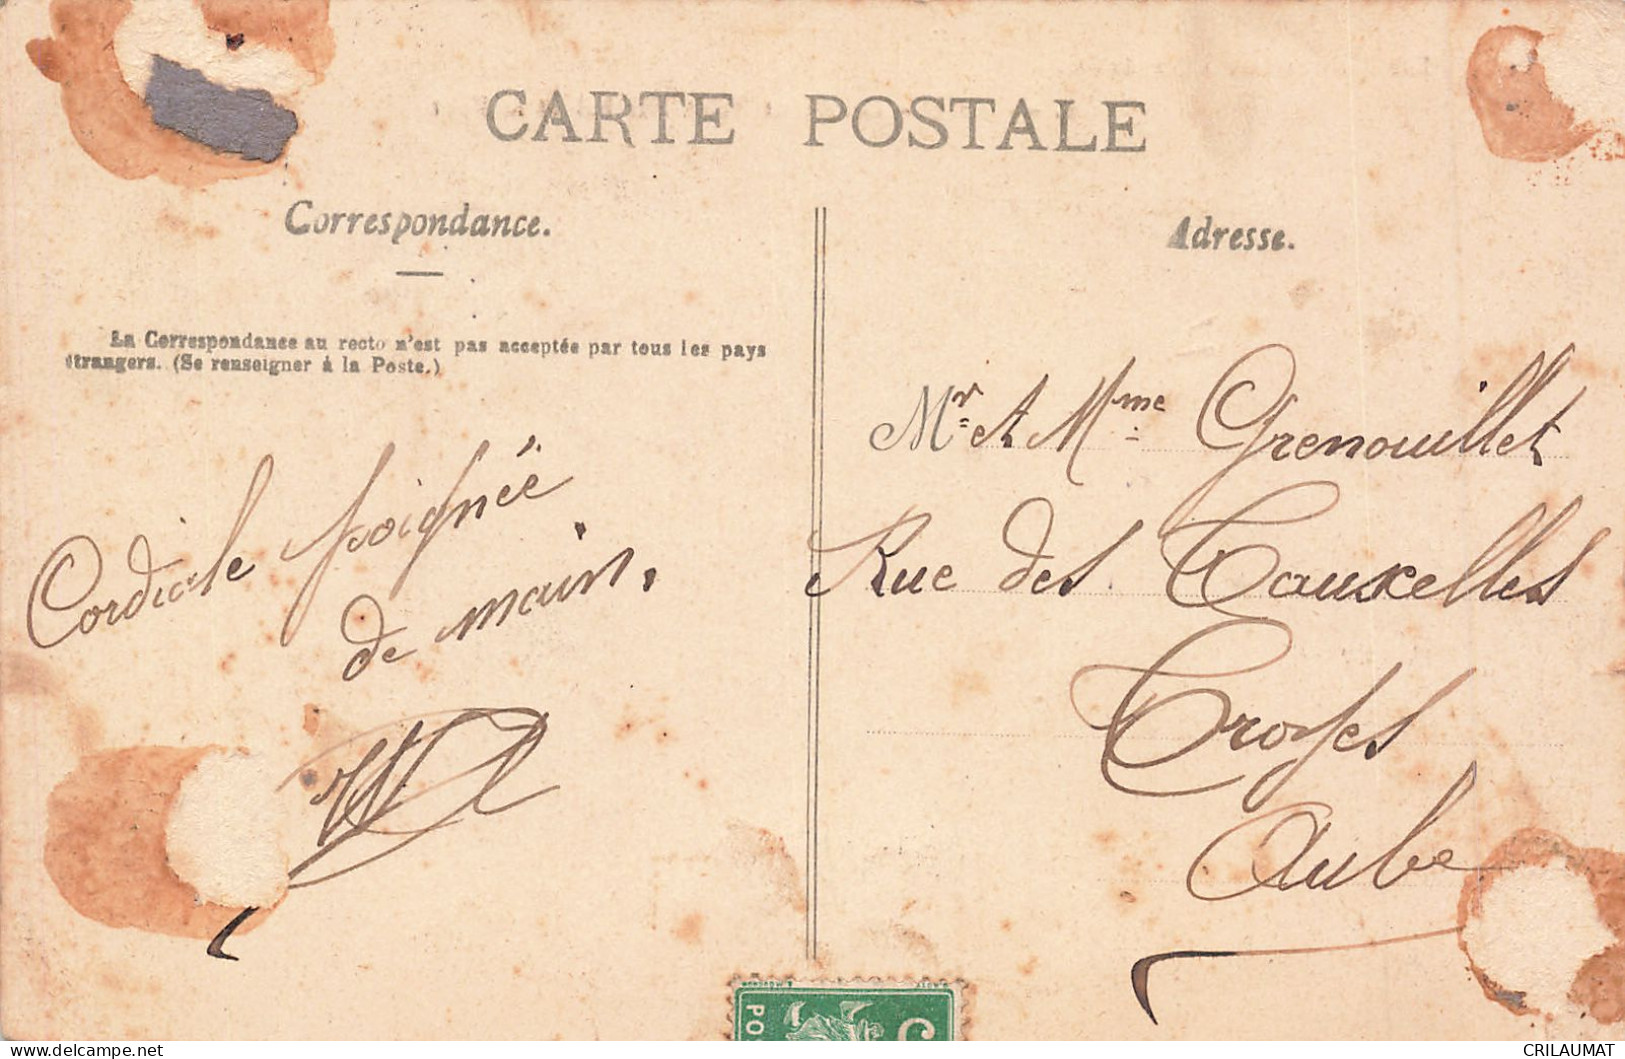 CARTE POSTALE
Correspondance.
La Correspondance au recto n'est pas acceptée par tous les pays
étrangers. (Se renseigner à la Poste.)
Cordiale poignée
de main.
Adresse.
Mr et Mme Grenouillet
Rue des Tauxelles
Troyes
Aube
5
PO
CRILAUMAT